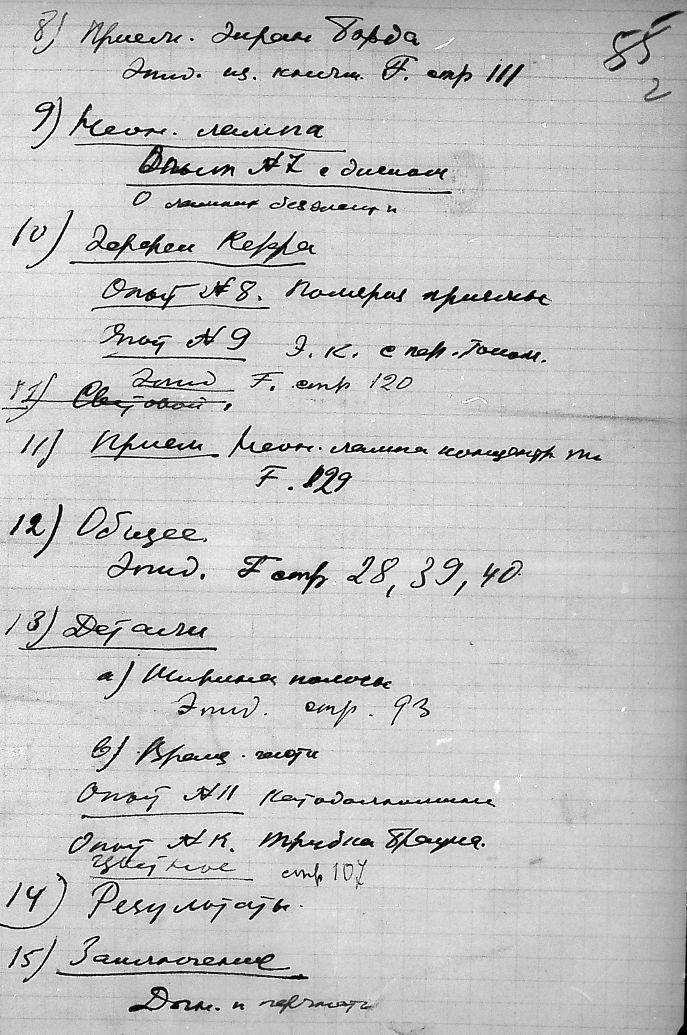 85
2
8) Приемн. Экран Берда
Эпид. из. книги F. стр 111
9) Неон. лампа
Опыт №7 с диском
О лампах
10) Эффект Керра
Опыт №8. Поляриз призмы
Опыт №9 Э. К. с пер. током.
Эпид F. стр 120
11) Световой.
11) Прием Неон. лампа концентр
F. 129
12) Общее.
Эпид. F стр 28, 39, 40.
13) Детали
а) Ширина полосы
Эпид. стр. 93
в) Вращ. части
Опыт №11 Катодолюминен
Опыт №К. трубка Брауна.
Цветное стр 107
14) Результаты.
15) Заключение